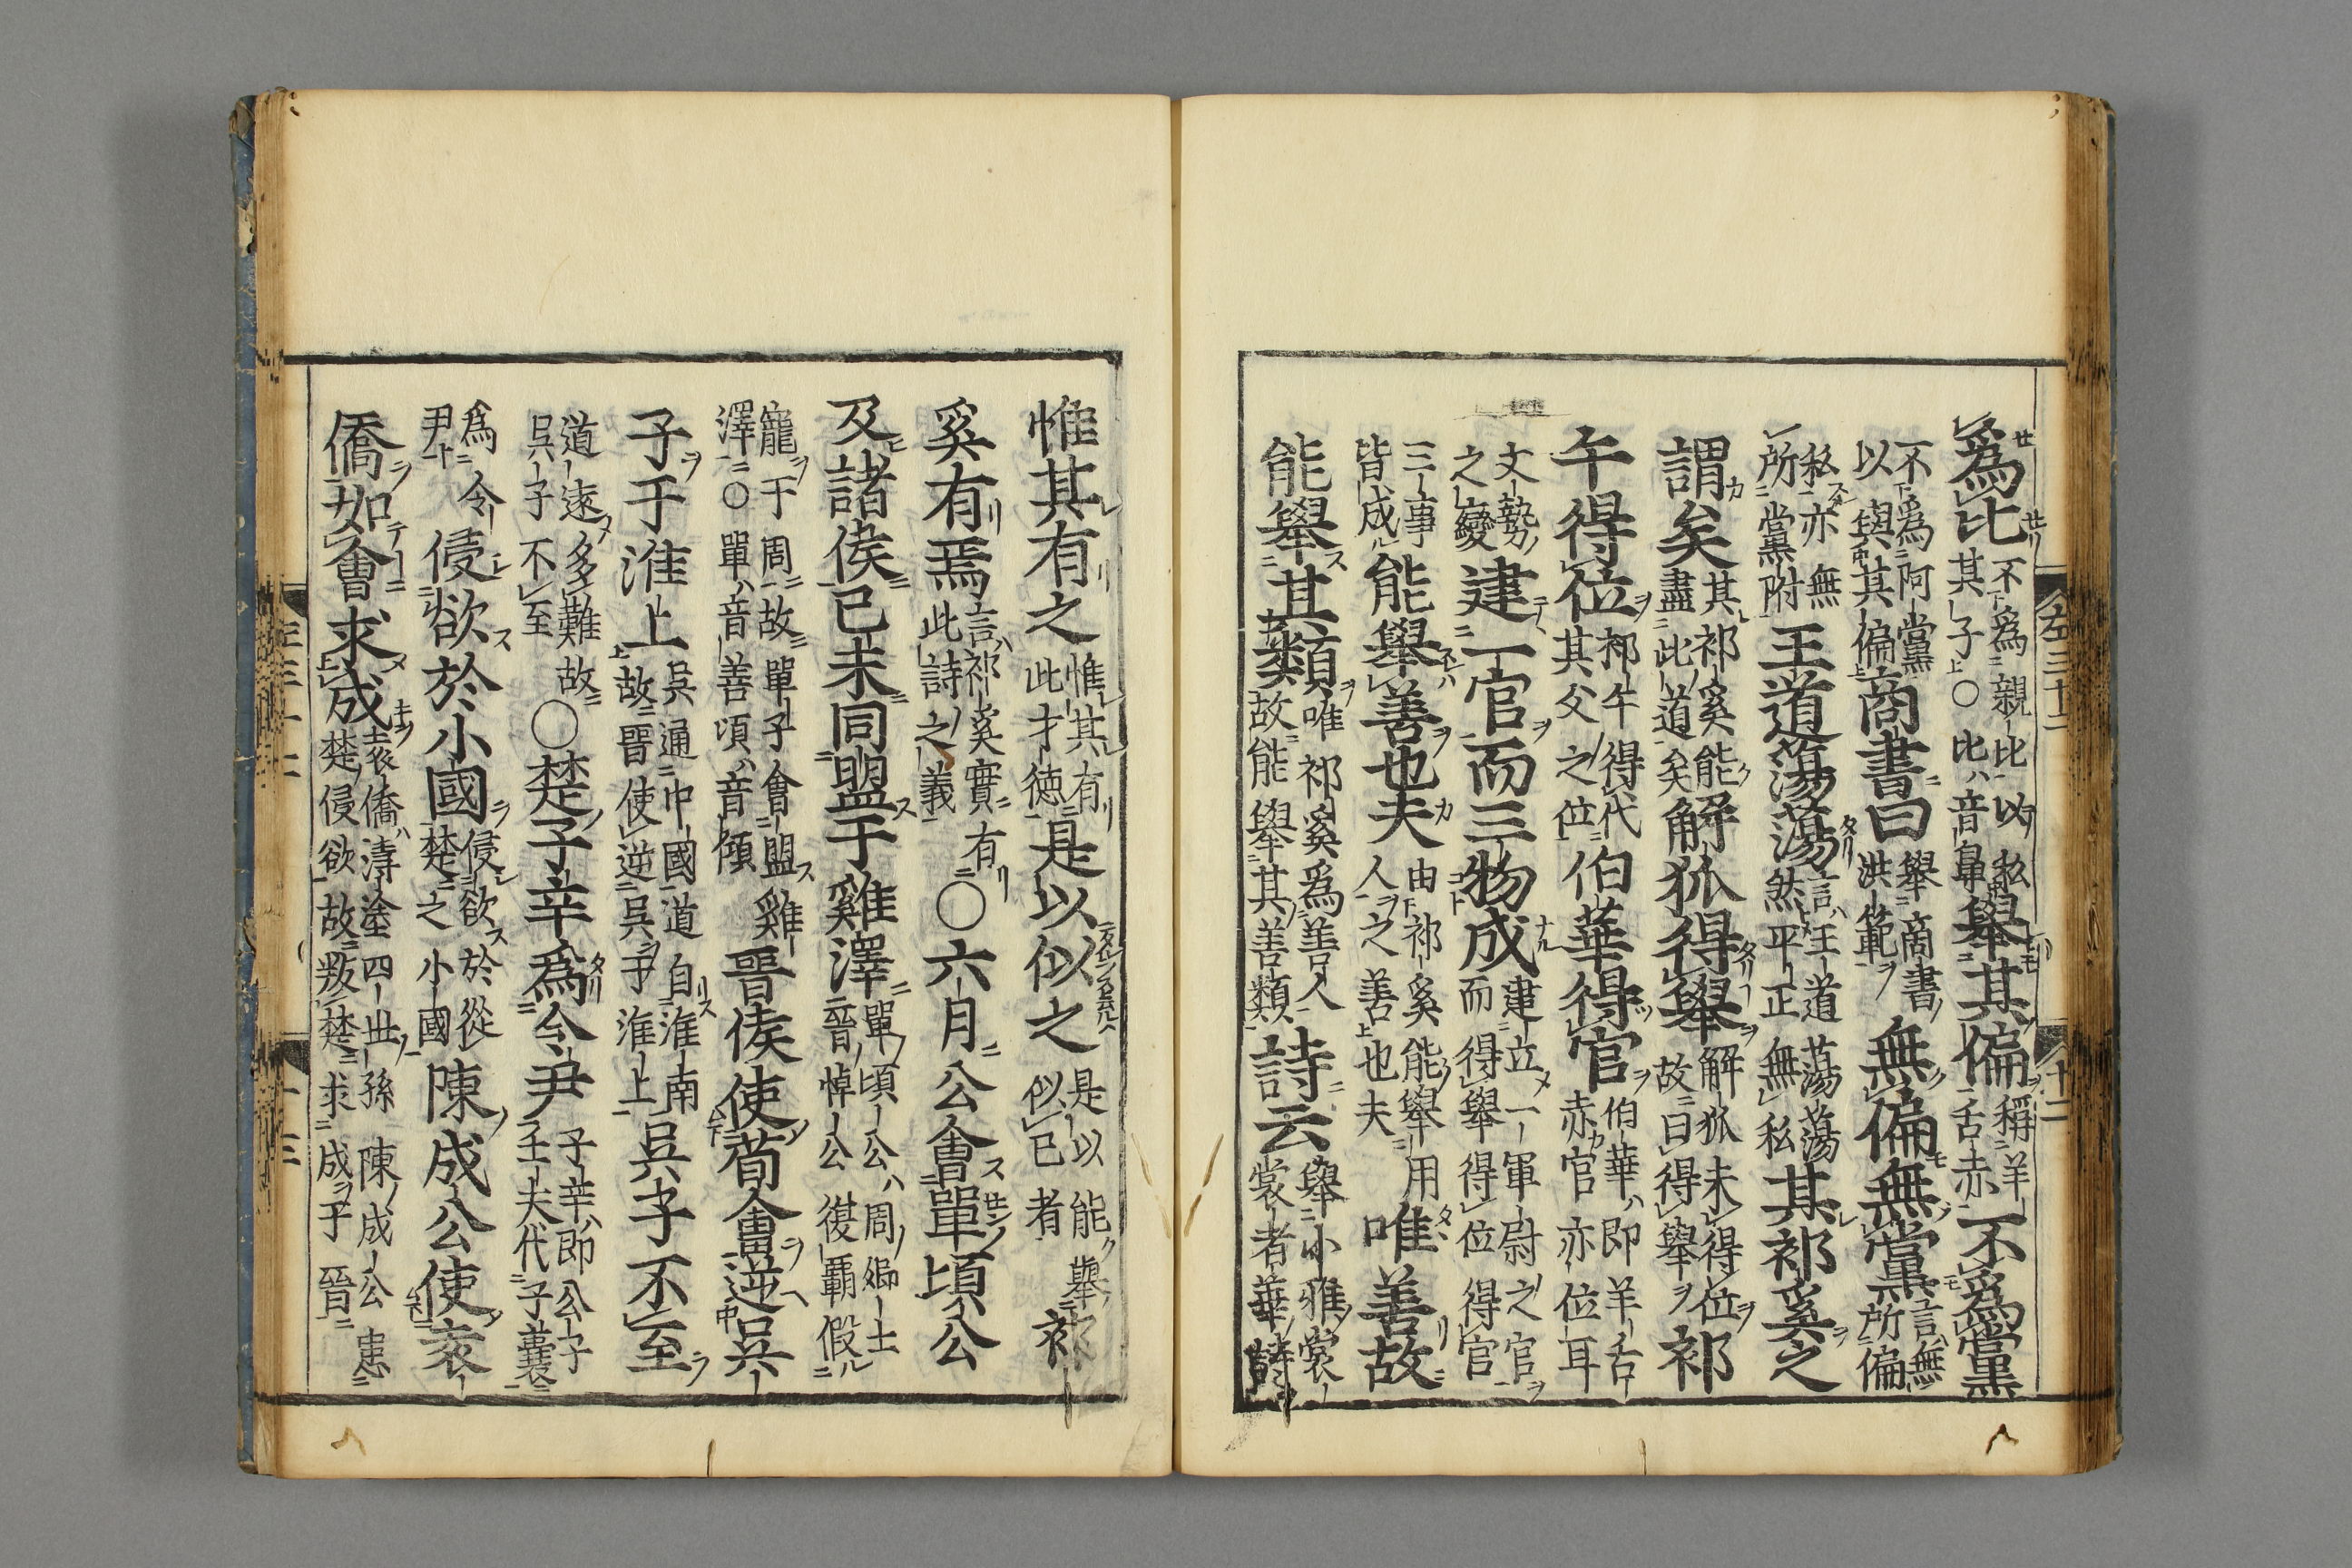 左三十二　十二
爲比不爲親比以私其子○比音鼻擧其偏稱羊舌赤不爲黨
不爲阿黨以與其偏商書曰擧商書洪範無偏無黨言無所偏
私亦無所黨附王道蕩蕩言王道蕩蕩然平正無私其祁奚之
謂矣其祁奚能盡此道矣解狐得擧解狐未得位故曰得擧祁
午得位祁午得代其父之位伯華得官伯華即羊舌赤官亦位耳
文勢之變建一官而三物成建立一軍尉之官而得擧得位得官
三事皆成能擧善也夫由祁奚能擧用人之善也夫唯善故
能擧其類唯祁奚爲善人故能擧其善類詩云擧小雅裳裳者華詩
惟其有之惟其有此才徳是以似之是以能擧似已者祁
奚有焉言祁奚實有此詩之義○六月公會單頃公
及諸侯己未同盟于雞澤單頃公周卿士晉悼公復覇假
寵于周故單子會盟雞澤○單音善頃音傾晉侯使荀會逆吳
子于淮上吳通中國道自淮南故晉使逆吳于淮上吳子不至
道遠多難故吳子不至○楚子辛爲令尹子辛即公子壬夫代子囊
爲令尹侵欲於小國侵欲於從楚之小國陳成公使袁
僑如會求成袁僑濤塗四世孫陳成公患楚侵欲故叛楚求成于晉